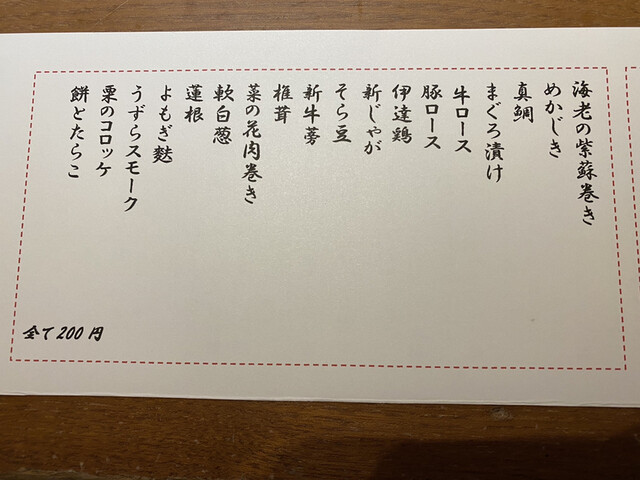 海老の紫蘇巻き
めかじき
真鯛
まぐろ漬け
牛ロース
豚ロース
伊達鶏
新じゃが
そら豆
新牛蒡
椎茸
菜の花肉巻き
軟白葱
蓮根
よもぎ麩
うずらスモーク
栗のコロッケ
餅どたらこ
全て200円